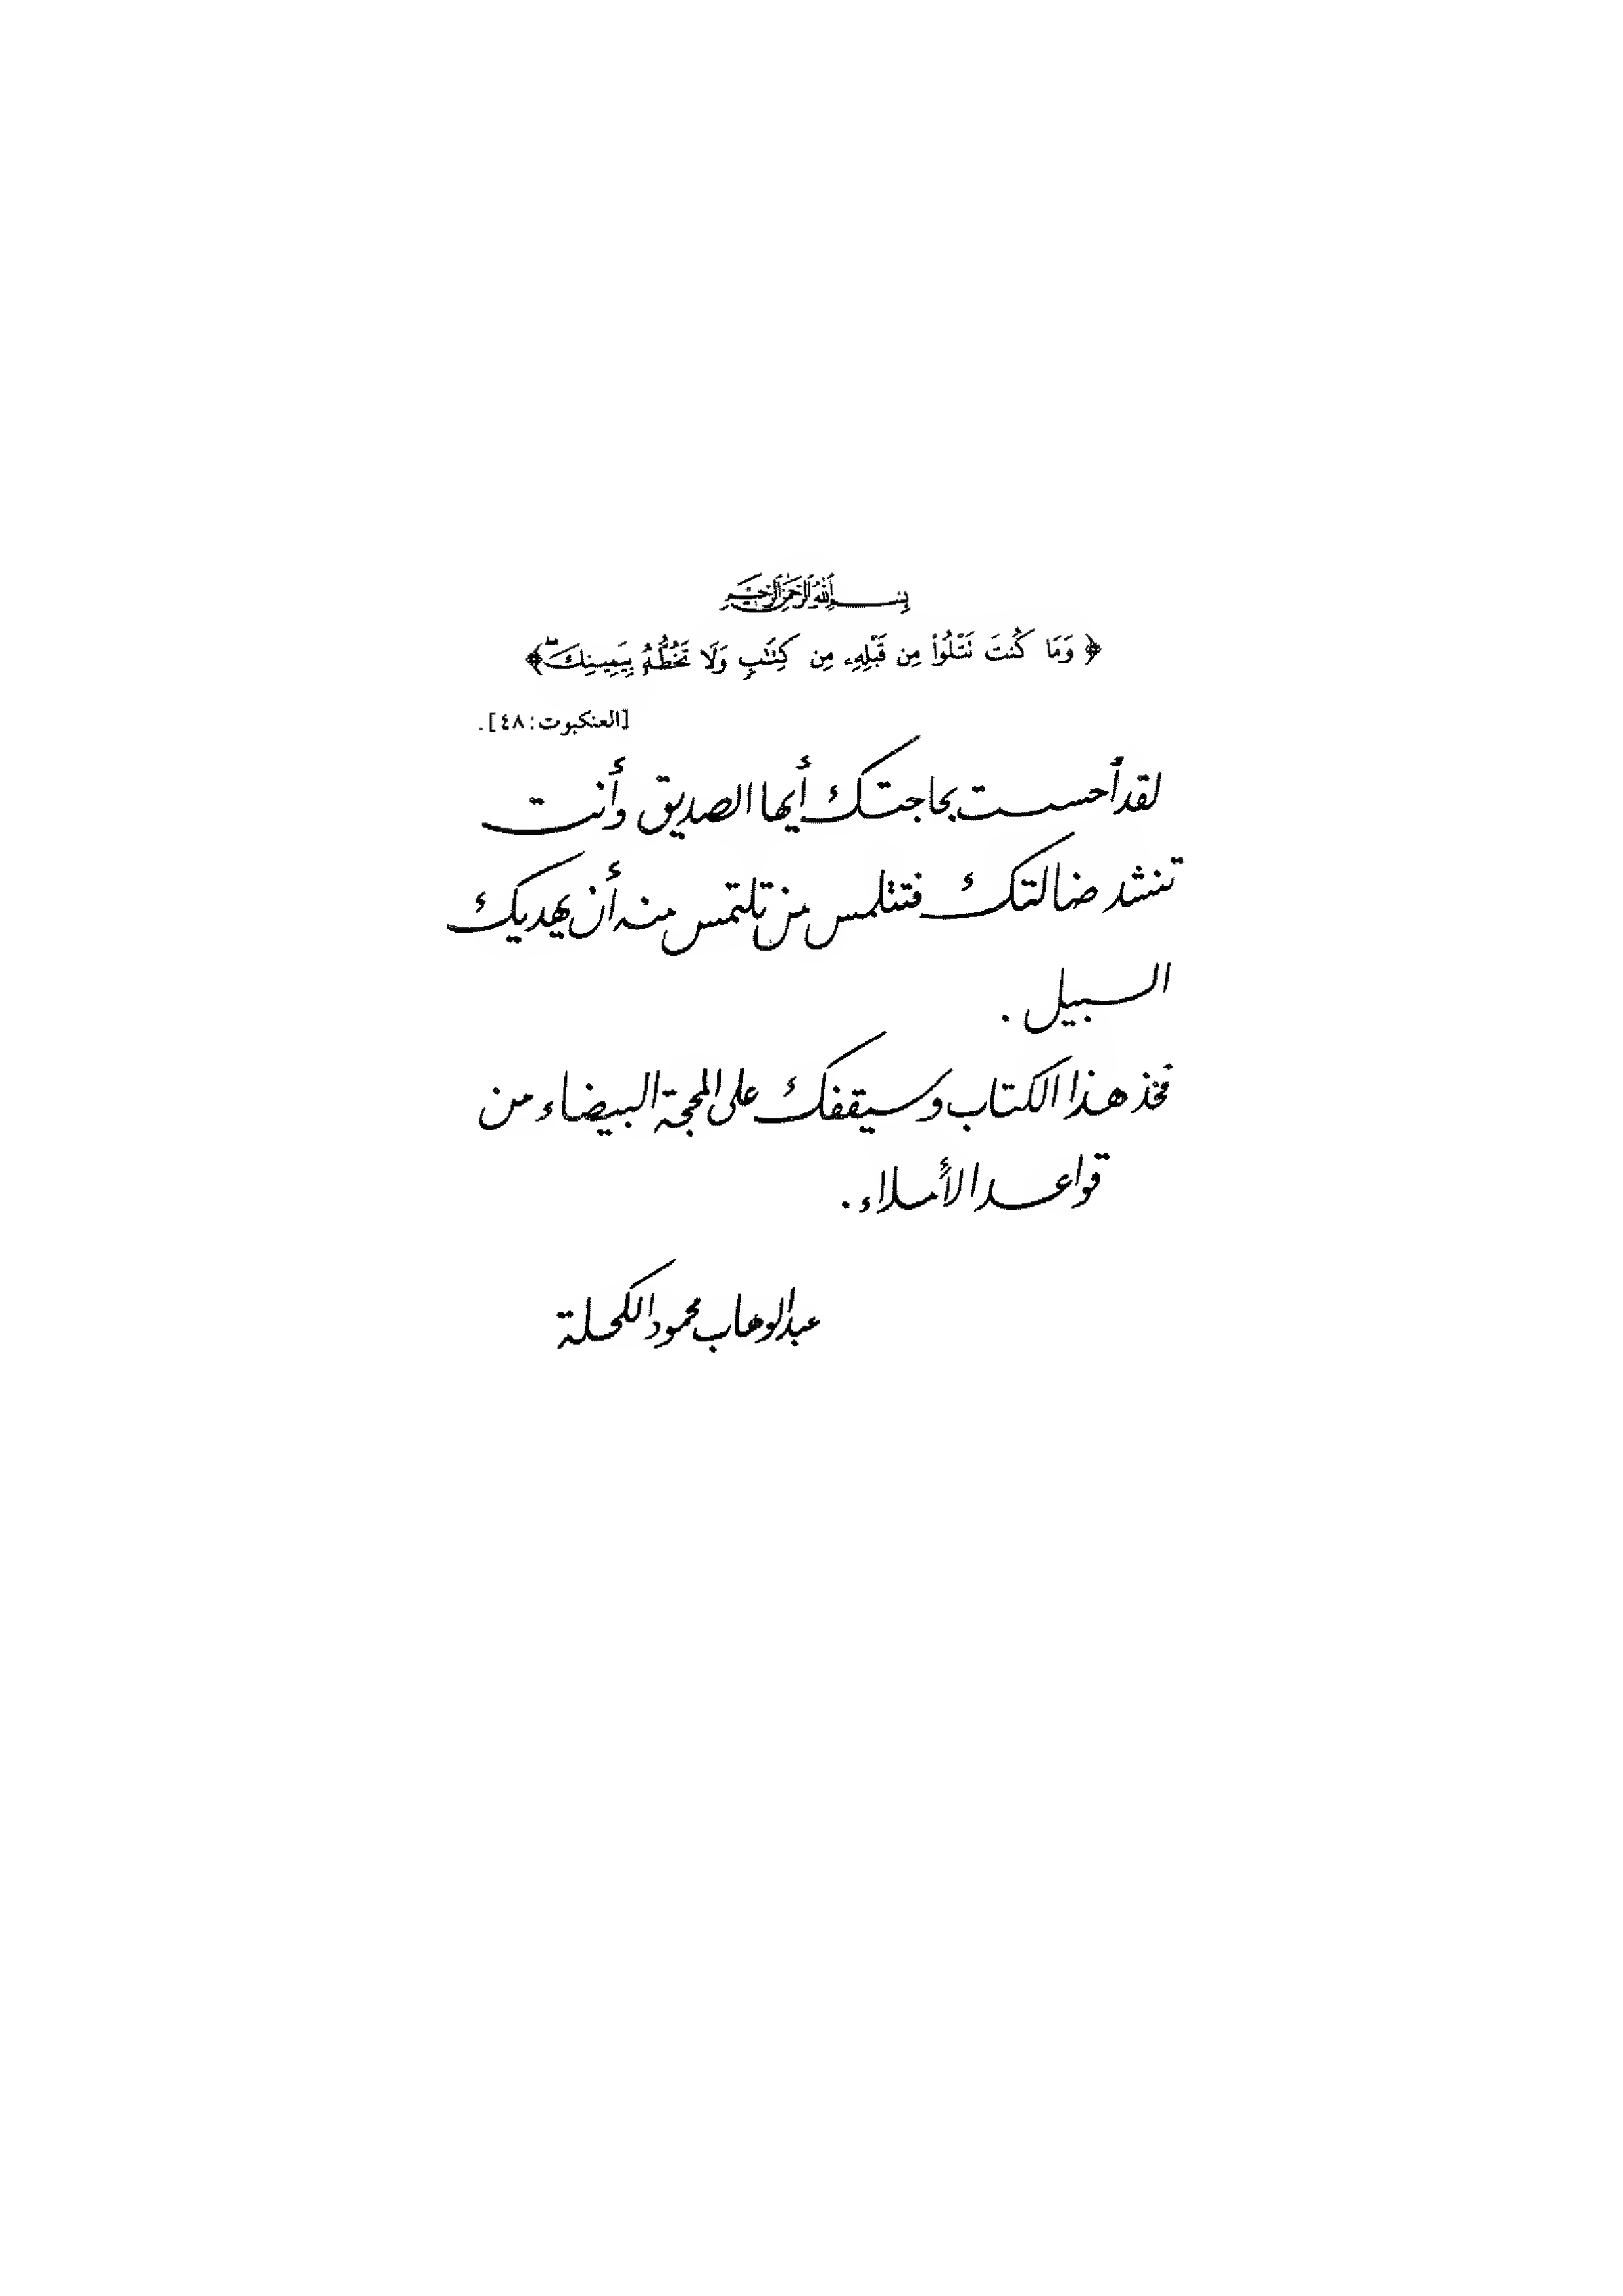 بِسْمِ اللَّهِ الرَّحْمَٰنِ الرَّحِيمِ
﴿ وَمَا كُنتَ تَتْلُوا۟ مِن قَبْلِهِۦ مِن كِتَٰبٍ وَلَا تَخُطُّهُۥ بِيَمِينِكَ ۖ ﴾
[العنكبوت: ٤٨].
لقد أحسست بحاجتك أيها الصديق وأنت
تنشد ضالتك فتتلمس من تلتمس منه أن يهديك
السبيل .
فخذ هذا الكتاب وسيقفك على المحجة البيضاء من
قواعد الأملاء .
عبدالوهاب محمود الكحلة